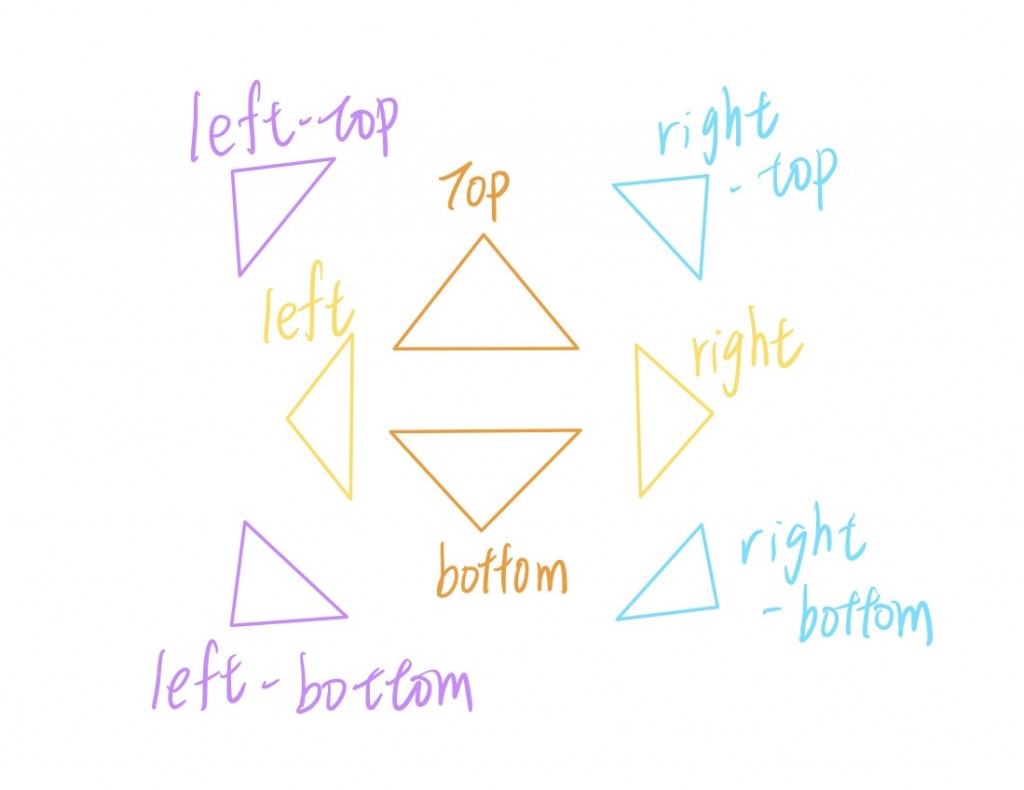 left-top
right
-top
Top
left
right
bottom
right
-bottom
left-bottom